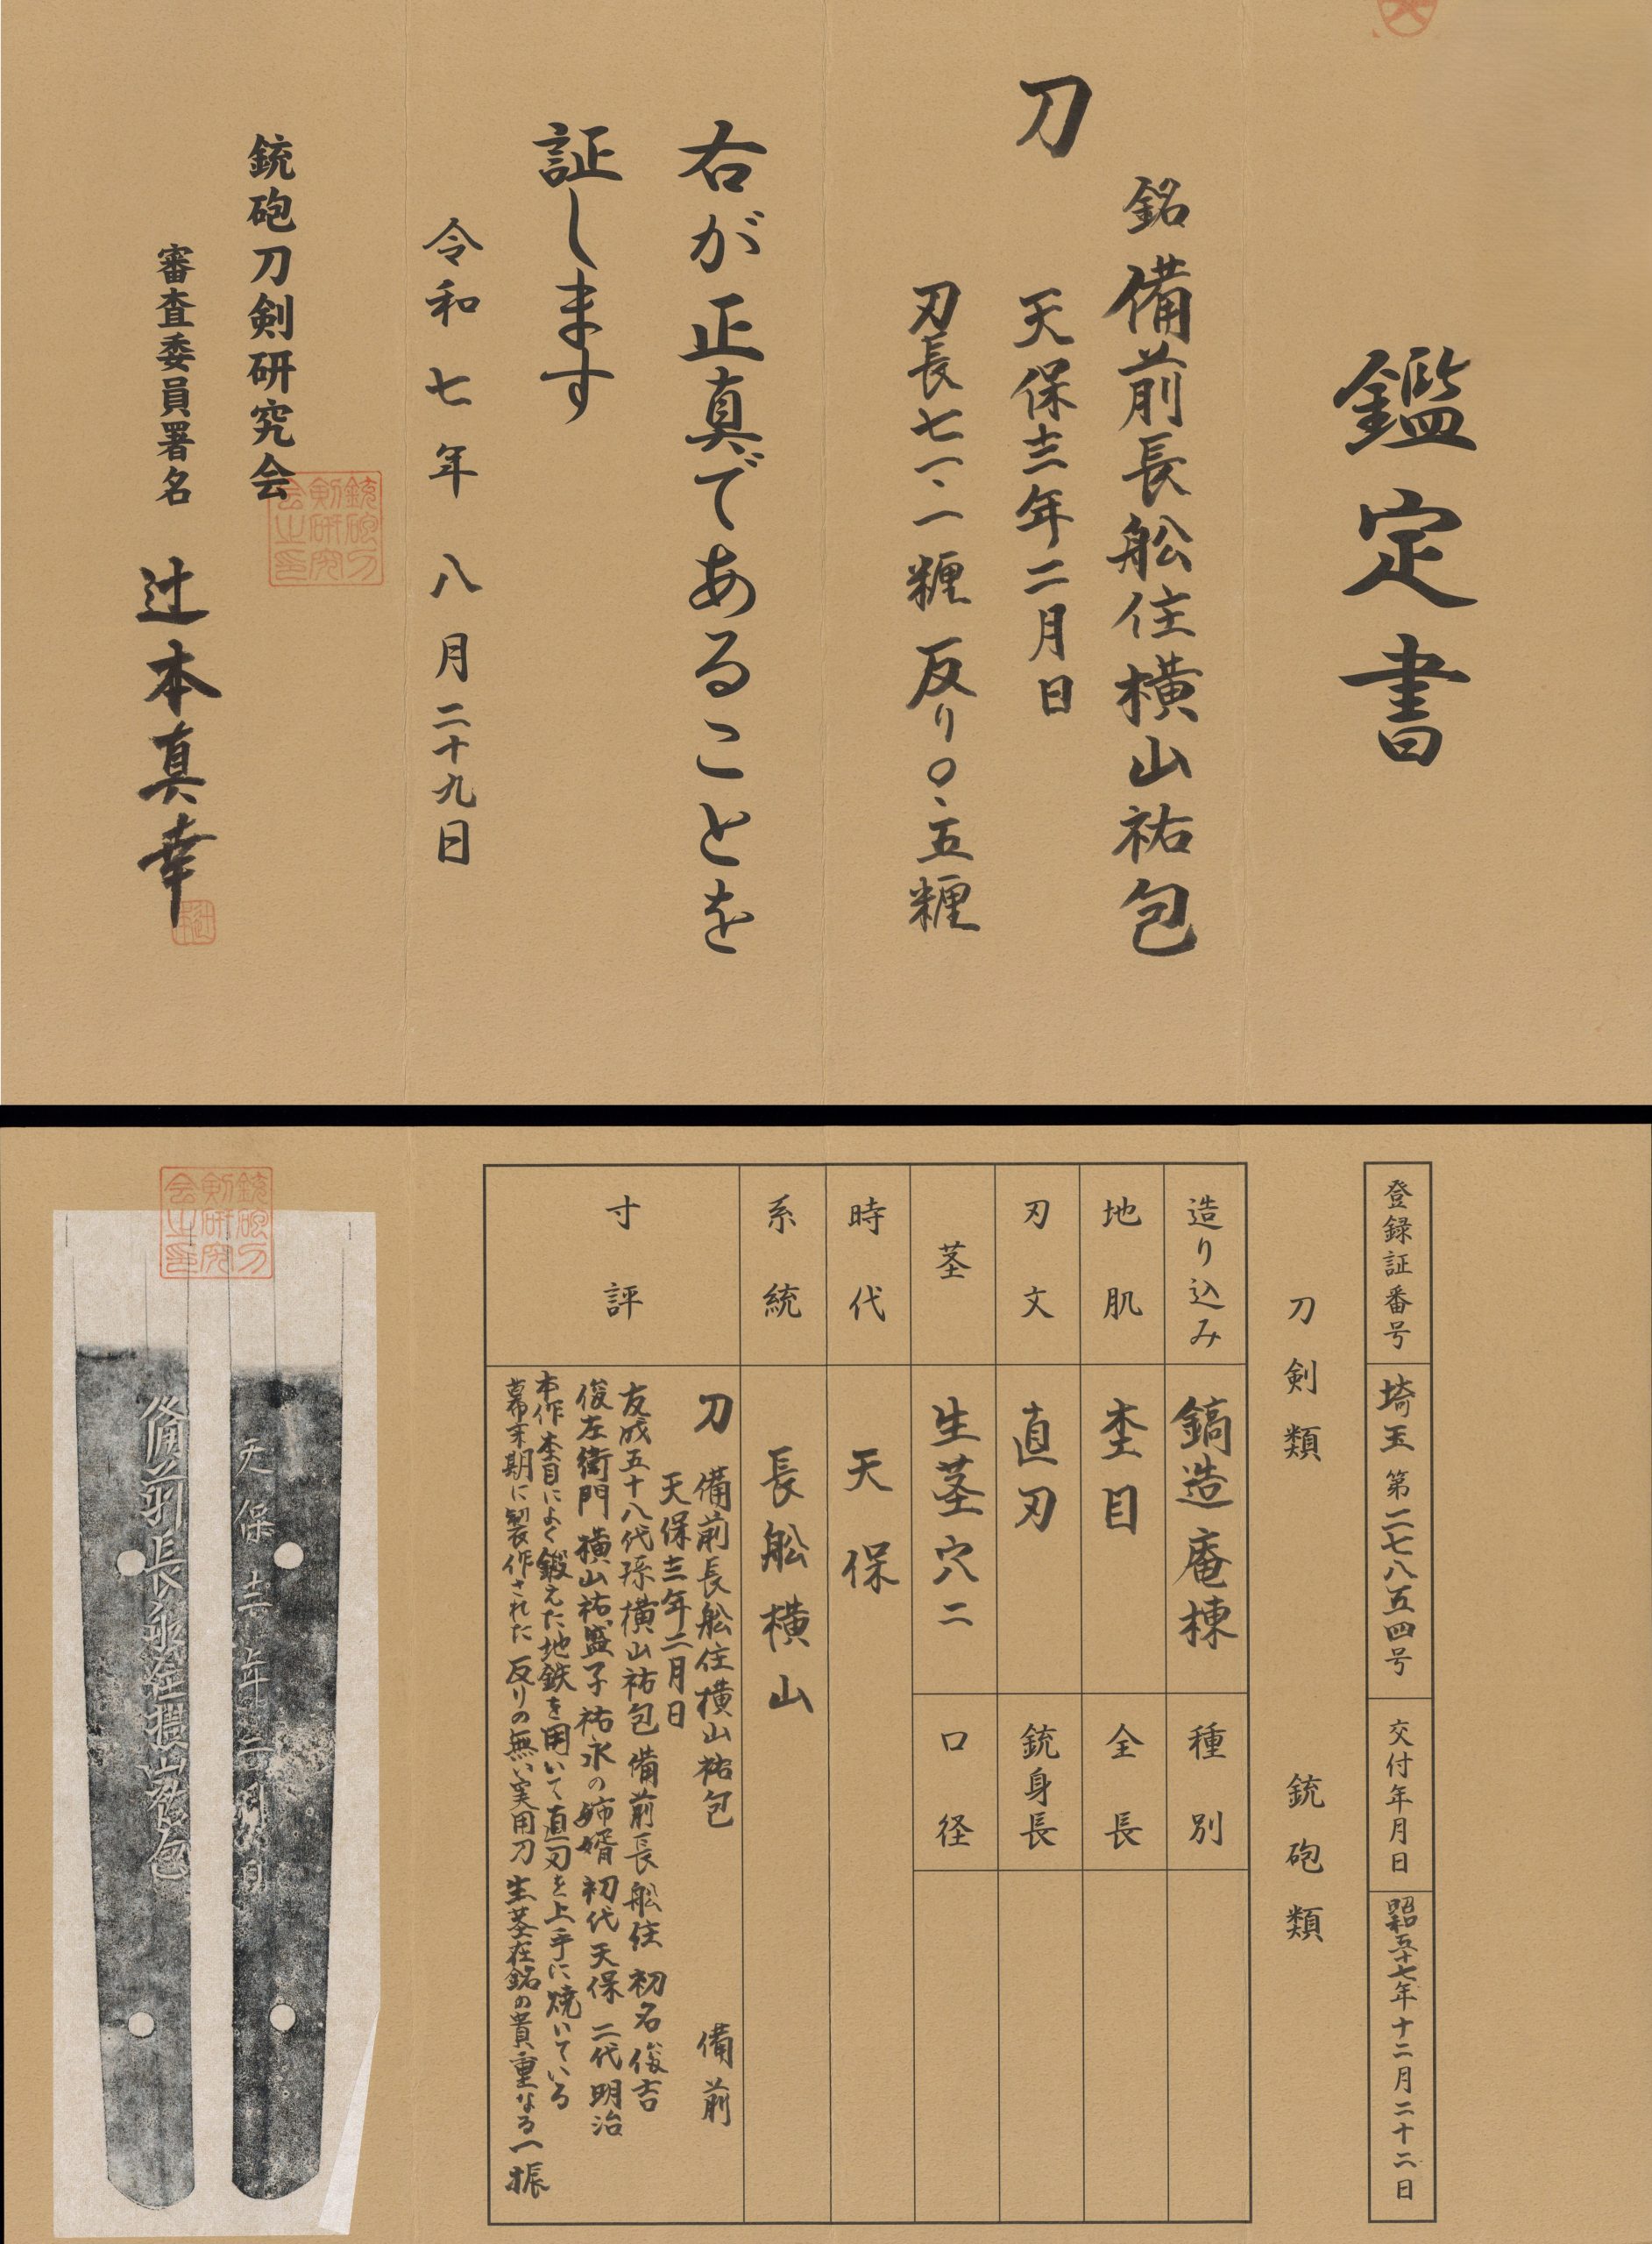 鑑定書
刀
銘 備前長舩住横山祐包
天保十三年二月日
刃長七一、一糎 反り〇、五糎
右が正真であることを
証します
令和七年八月二十九日
銃砲刀剣研究会
審査委員署名 辻本真幸
銃砲刀剣研究会之印
登録証番号 埼玉 第二七八五四号 交付年月日 昭和五十七年十二月二十二日
刀剣類 銃砲類
造り込み 鎬造庵棟 種別
地肌 杢目 全長
刃文 直刃 銃身長
茎 生茎穴二 口径
時代 天保
系統 長舩横山
寸評
刀 備前長舩住横山祐包 備前
天保十三年二月日
友成五十八代孫横山祐包 備前長舩住 初名俊吉
俊左衛門 横山祐盛子 祐永の姉婿 初代天保 二代明治
本作杢目によく鍛えた地鉄を用いて直刃を上手に焼いている
幕末期に製作された反りの無い実用刀 生茎在銘の貴重なる一振
銃砲刀剣研究会之印
天保十三年二月日
備前長舩住横山祐包